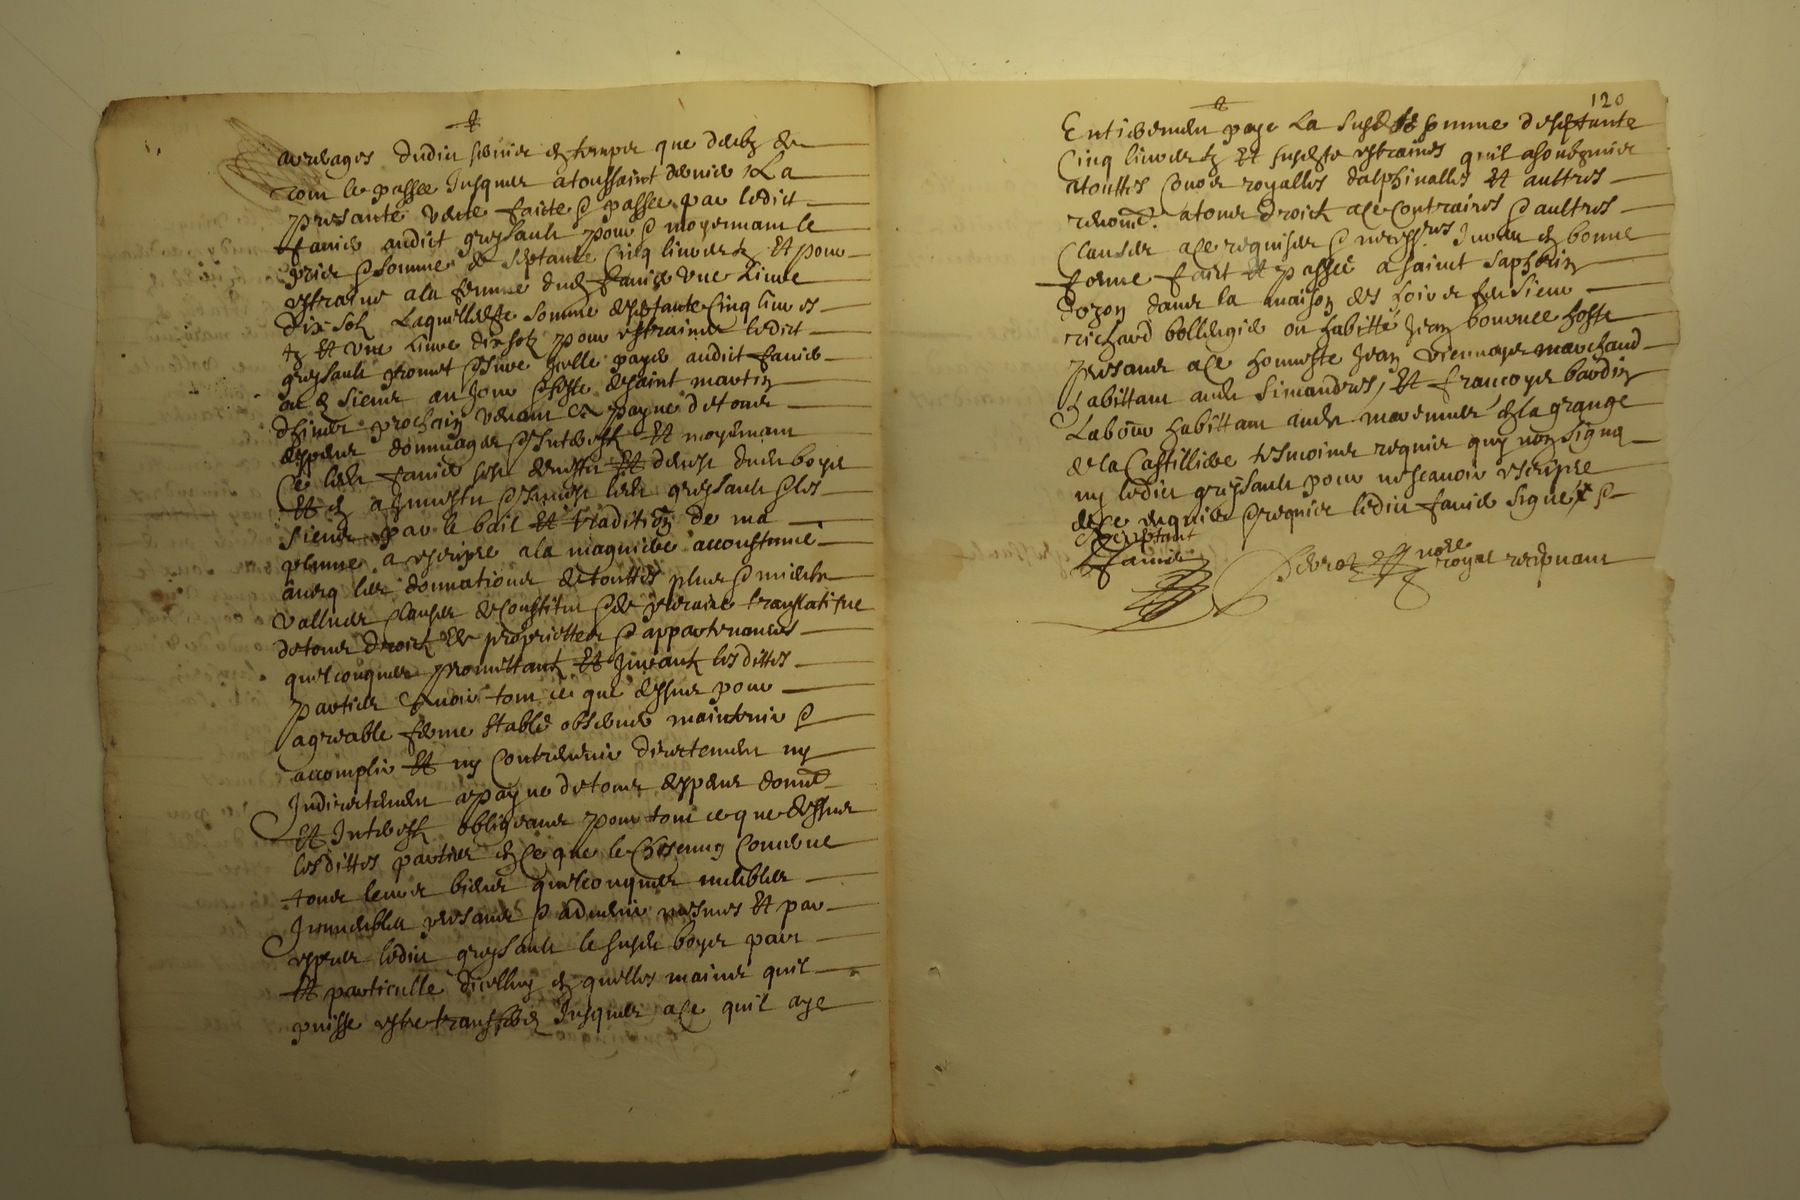 arrerages dudict servier et temps que debtz de
tout le passee Jusques a toussainct dernier La
presante vente faicte & passee par ledict
fanier audict greysault pour & moyennant le
pries & somme de Septante Cinq livres tz Et pour
estraine a la femme dud fanier Une Livre
Dix solz Laquelle somme de septante Cinq livres
tz Et une Livre dix solz pour estraines ledict
greysault promet & jure icelle payer audict fanier
ou es siens au Jour & feste de saint martin
dhiver prochain venant a payne de tous
despens dommages & Interestz Et moyennant
Ce led fanier sest devestu Et demis dud boys
Et en a Investu & saisy led greysault & les
siens par le bail Et tradition de ma
plume a escripre a la maniere accoustumee
avecq les donnations de touttes plus & mieulx
vallues Clauses de Constitut & de precaire translative
de tous droictz de proprietter & appartenances
quelconques promettantz Et Jurantz lesdittes
parties avoir tout ce que dessus pour
agreable ferme stable observer maintenir &
accomplir Et ny Contrevenir directement ny
Indirectement a payne de tous despens domd
Et Interestz obligeans pour tout ce que dessus
lesdittes parties en Ce que le Chascung Concerne
tous leurs biens quelconques meubles
Immeubles presans & advenir mesmes Et par
expres ledict greysault le susd boys part
Et particulle dicelluy en quelles mains quil
puisse estre transferer Jusques a Ce quil aye
120
Entierement paye La susd somme de septante
Cinq livres tz Et susdte estraines quil a soubzmis
a touttes Cours royalles dalphinalles Et aultres
renonce a tous droictz a Ce Contraires & aultres
Clauses a Ce requises & necessres Juree en bonne
forme faict Et passé a Saint Saphorin
dozon dans la maison des hoirs feu sieur
richard bollengier ou habitte Jean bournee hoste
presans a Ce honneste Jean viennoys marchand
habittant aud Simandres, Et francoys bardin
Laboure habittant aud marennes en la grange
de la Castilliere tesmoins requis quy nont signe
ny ledict greysault pour ne scavoir escripre
de Ce enquis & requis ledict fanier signe &
acceptant
fanier
notre royal recepvant